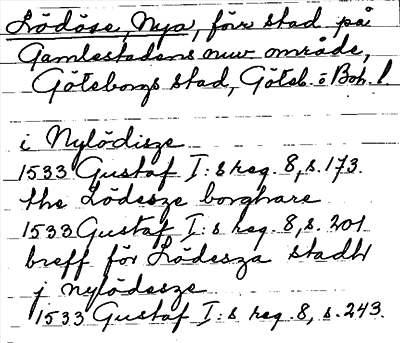 Lödöse, Nya, förr stad på
Gamlestadens nuv område,
Göteborgs stad, Göteb. o Boh. l.
i Nylödisze
1533 Gustaf I:s reg. 8, s. 173.
the Lödesze borghare
1533 Gustaf I:s reg. 8, s. 201
breff för Lödesza stadh
j nylödesze
1533 Gustaf I:s reg. 8, s. 243.